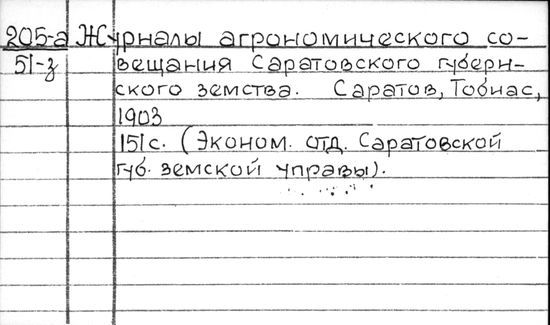 205-а Журналы агрономического со-
51-з вещания Саратовского губерн-
ского земства. Саратов, Тобиас,
1903
151с. (Эконом. отд. Саратовской
губ. земской управы).